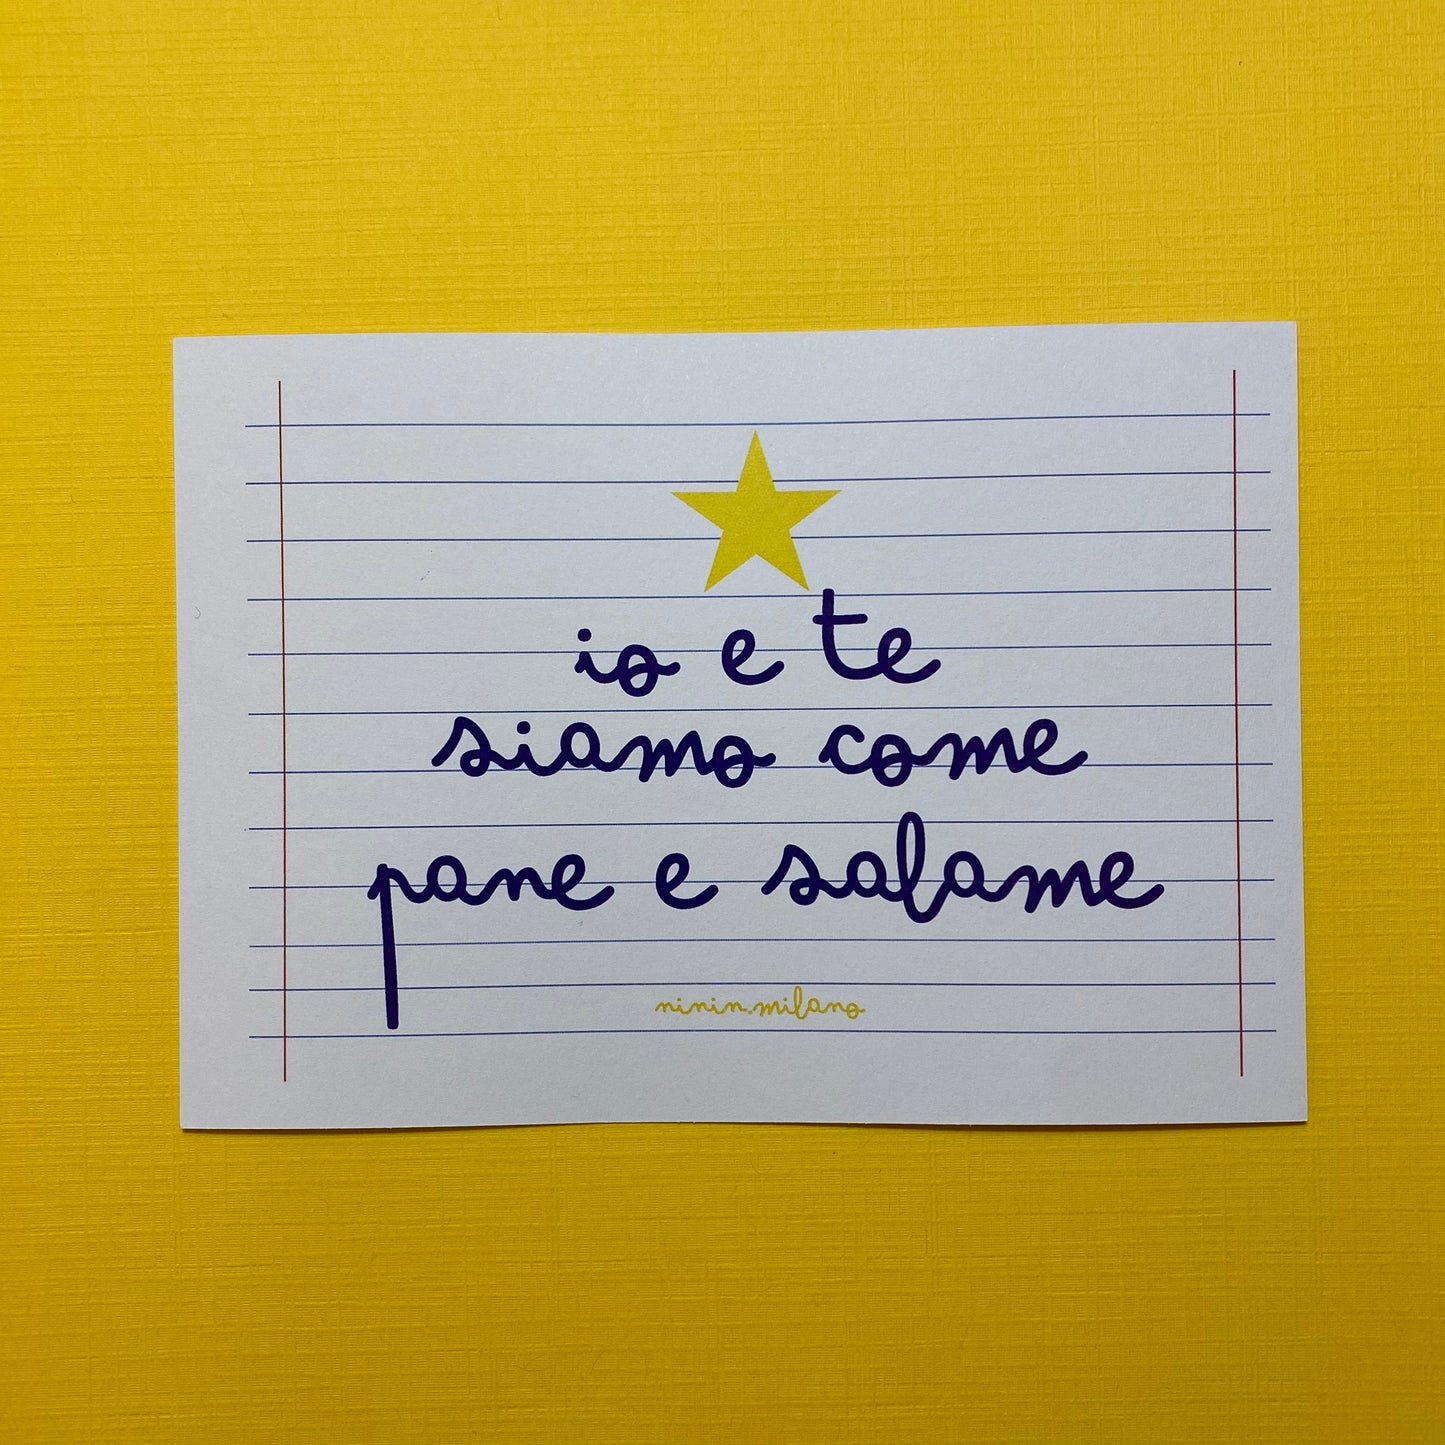 io e te
siamo come
pane e salame
ninin.milano